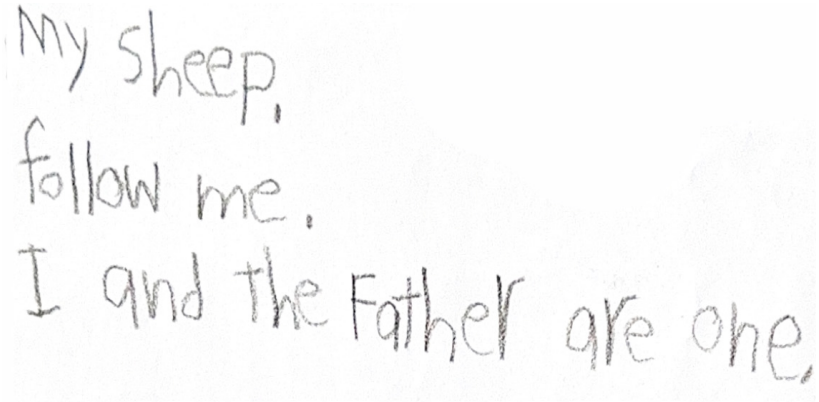 My sheep,
follow me.
I and the Father are one.